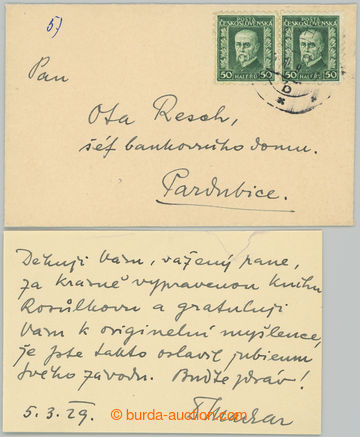 5)
POSTA
ČESKOSLOVENSKÁ
50 HALÉŘŮ 50
POSTA
ČESKOSLOVENSKÁ
50 HALÉŘŮ 50
Pan
Ota Resch,
šéf bankovního domu.
Pardubice.
Děkuji Vám, vážený pane,
za krásně vypravenou knihu
Rosůlkovu a gratuluji
Vám k originelní myšlence,
že jste takto oslavil jubileum
svého závodu. Buďte zdráv!
5.3.29.
burda-auction.com